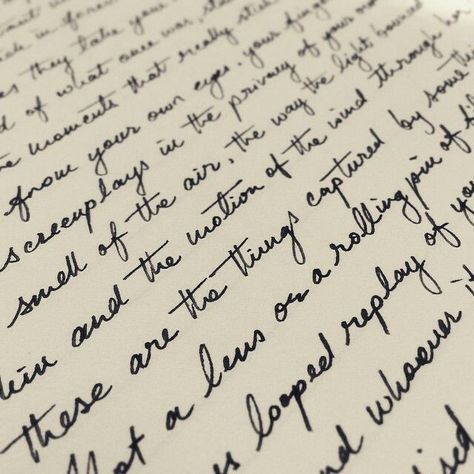 es they take your
d of what once was, 
he moments that really stick
from your own eyes. your finger
screenplays in the privacy of your own
smell of the air, the way the light bounced
kin and the motion of the wind through her
these are the things captured by someth
Not a lens or a rolling pin of f
s looped replay of yo
nd whoever i